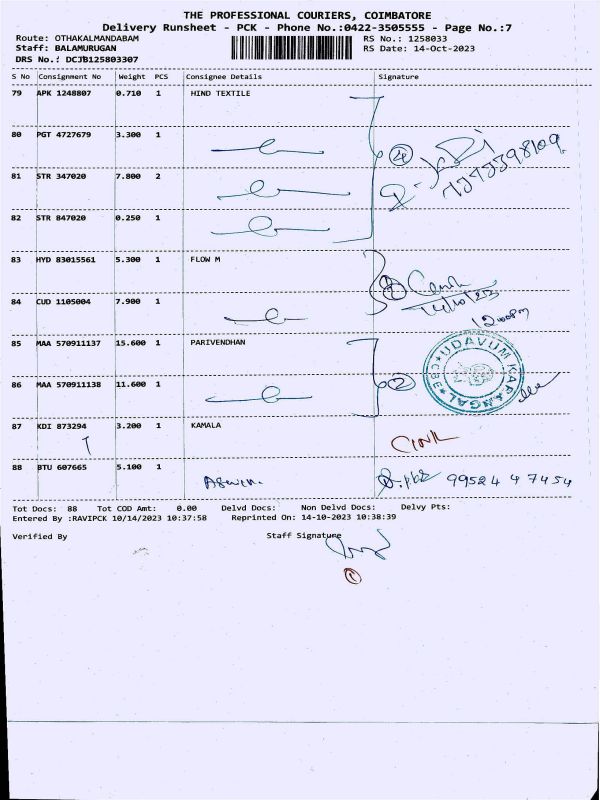 THE PROFESSIONAL COURIERS, COIMBATORE
Delivery Runsheet - PCK - Phone No.:0422-3505555 - Page No.:7
Route: OTHAKALMANDABAM RS No.: 1258033
Staff: BALAMURUGAN RS Date: 14-Oct-2023
DRS No.: DCJB125803307
S No Consignment No Weight PCS Consignee Details Signature
79 APK 1248807 0.710 1 HIND TEXTILE
80 PGT 4727679 3.300 1
4
81 STR 347020 7.800 2
82 STR 847020 0.250 1
83 HYD 83015561 5.300 1 FLOW M
84 CUD 1105004 7.900 1
14/10/23
12:00pm
85 MAA 570911137 15.600 1 PARIVENDHAN
UDAVUM KARANGAL
CBE
86 MAA 570911138 11.600 1
2
87 KDI 873294 3.200 1 KAMALA
88 BTU 607665 5.100 1
Aswin. 99524 47454
Tot Docs: 88 Tot COD Amt: 0.00 Delvd Docs: Non Delvd Docs: Delvy Pts:
Entered By :RAVIPCK 10/14/2023 10:37:58 Reprinted On: 14-10-2023 10:38:39
Verified By Staff Signature
1